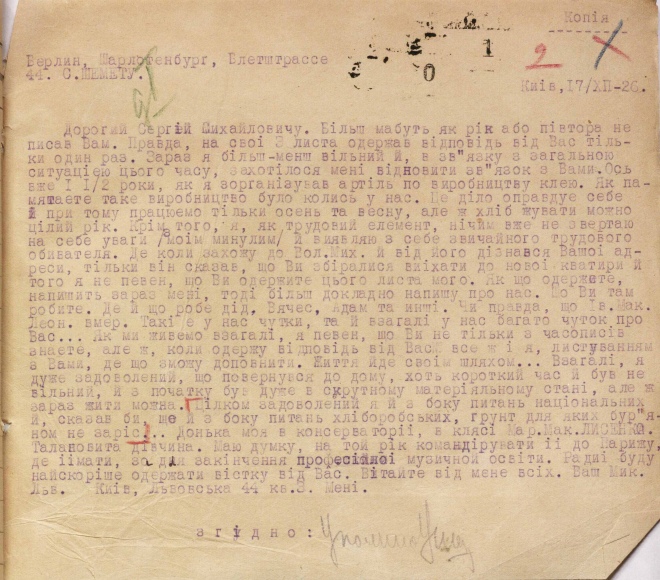 Копія
2 X
1
0
Берлин, Шарлотенбург, Влетштрассе
44. С.ШЕМЕТУ.
Київ, 17/XП-26.
Дорогий Сергій Михайловичу. Більш мабуть як рік або півтора не
писав Вам. Правда, на свої 3 листа одержав відповідь від Вас тіль-
ки один раз. Зараз я більш-менш вільний й, в зв"язку з загальною
ситуацією цього часу, захотілося мені відновити зв"язок з Вами. Ось
вже I 1/2 роки, як я зорганізував артіль по виробництву клею. Як па-
мятаєте таке виробництво було колись у нас. Це діло оправдує себе
й при тому працюємо тільки осень та весну, але ж хліб жувати можно
цілий рік. Крім того, я, як трудовий елемент, нічим вже не звертаю
на себе уваги /моїм минулим/ й виявляю з себе звичайного трудового
обивателя. Де коли захожу до Вол.Мих. й від його дізнався Вашої ад-
реси, тільки він сказав, що Ви збіралися виїхати до нової кватири й
того я не певен, що Ви одержите цього листа мого. Як що одержете,
напишить зараз мені, тоді більш докладно напишу про нас. Що Ви там
робите. Де й що робе дід, Вячес, Адам та инші. Чи правда, що Ів.Мак.
Леон. вмер. Такі є у нас чутки, та й взагалі у нас багато чуток про
Вас... Як ми живемо взагалі, я певен, що Ви не тільки з часописів
знаєте, але ж, коли одержу відповідь від Вас все ж і я, листуванням
з Вами, де що зможу доповнити. Життя йде своїм шляхом... Взагалі, я
дуже задоволений, що повернувся до дому, хоть короткий час й був не
вільний, й з початку був дуже в скрутному матеріяльному стані, але ж
зараз жити можна. Цілком задоволений я й з боку питань національних
й, сказав би, ще й з боку питань хліборобських, грунт для яких бур"я-
ном не заріс!.. Донька моя в консерваторії, в клясі Мар.Мак.ЛИСЕНКА.
Талановита дівчина. Маю думку, на той рік командірувати її до Парижу,
де її мати, для закінчення професійної музичної освіти. Радий буду
найскоріше одержати вістку від Вас. Вітайте від мене всіх. Ваш Мик.
Льв. Київ, Львовська 44 кв.3. Мені.
згідно: